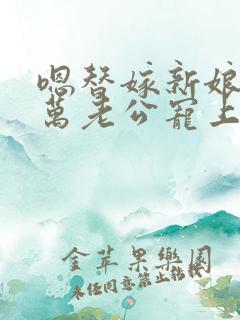 嗯替嫁新娘
萬老公寵上
金苹果樂園
未任同意禁止轉載